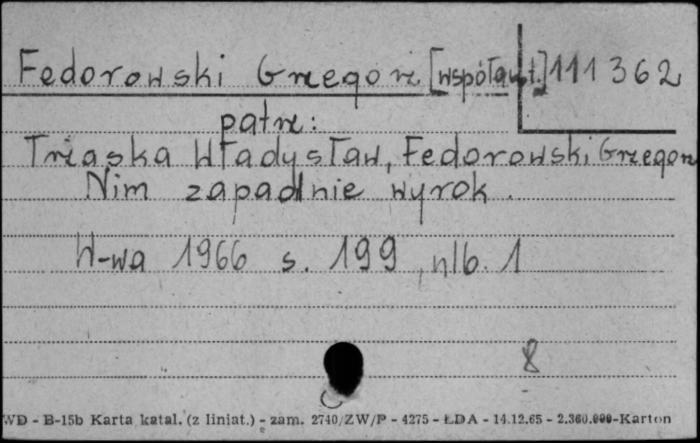 Fedorowski Grzegorz [współaut.] 111362
patrz:
Trzaska Władysław, Fedorowski Grzegorz
Nim zapadnie wyrok.
W-wa 1966 s. 199, nlb. 1
8
WD - B-15b Karta katal. (z liniat.) - zam. 2740/ZW/P - 4275 - ŁDA - 14.12.65 - 2.360.000-Karton